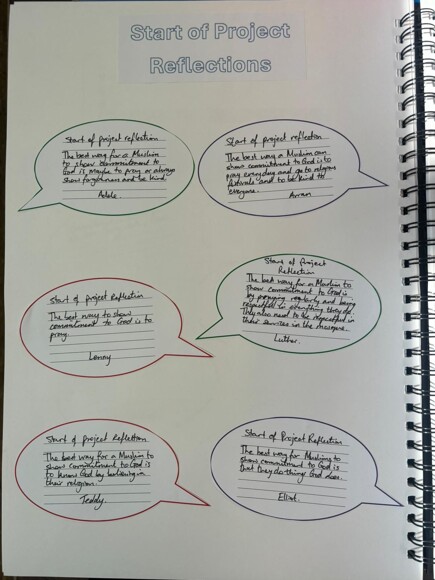 Start of Project
Reflections
Start of project reflection
The best way for a Muslim
to show commitment to
God is maybe to pray or always
show forgiveness and be kind.
Adele.
Start of project reflection
The best way a Muslim can
show commitment to God is to
pray everyday and go to religious
festivals and to be kind to
everyone.
Arran
Start of project Reflection
The best way to show
commitment to God is to
pray.
Lenny
Start of Project
Reflection
The best way for a Muslim to
show commitment to God is
by praying regularly and being
respectful in everything they do.
They also need to be respectful in
their services in the mosque.
Luther.
Start of project Reflection
The best way for a Muslim to
show commitment to God is
to know God by believing in
their religion.
Teddy.
Start of Project Reflection
The best way for Muslims to
show commitment to God is
that they do things God does.
Eliot.